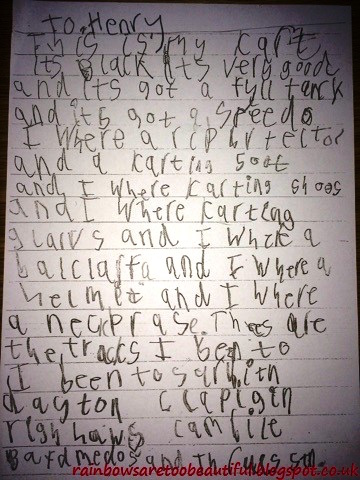 To Henry
This is my cart
its black its very good
and its got a full tank
and its got a speedo
I where a rip prtector
and a karting soot
and I where karting shoos
and I where karting
glarvs and I where a
balclaffa and I where a
helmet and I where
a neckprase. Thees are
the tracks I been to
I been to
dayton clapigin
righ haws
and
rainbowsaretoobeautiful.blogspot.co.uk